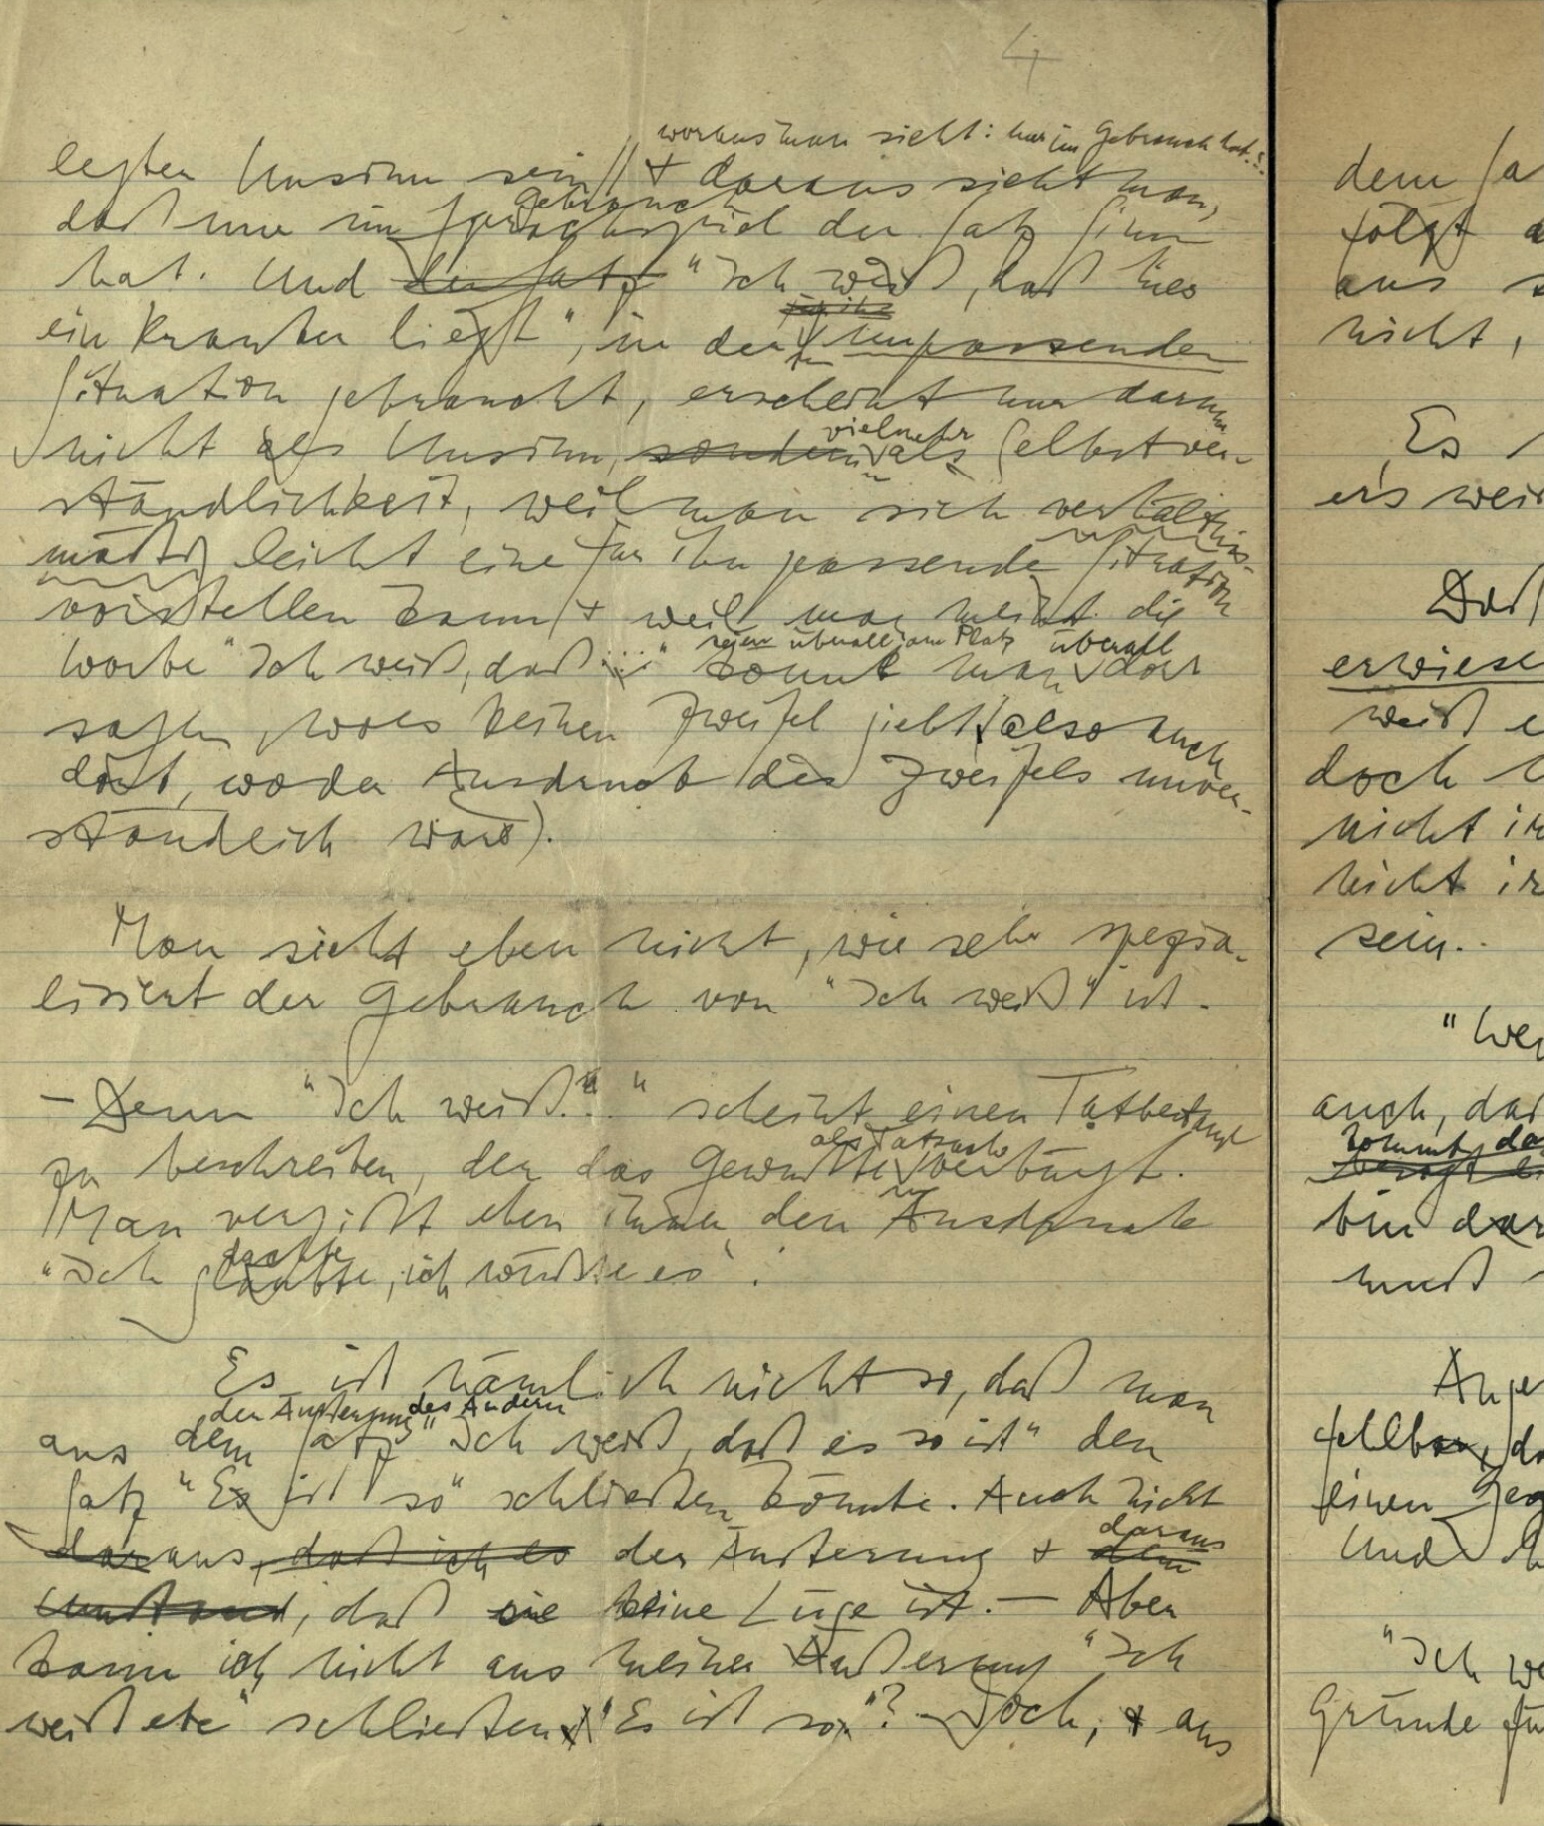 4
woraus man sieht: nur im Gebrauch hat.
legten Unsinn sein // + daraus sieht man,
Gebrauch
daß nur im Sprachspiel der Satz Sinn
hat. Und der Satz "Ich weiß, daß hier
ein Kranker liegt", in der unpassenden
Situation gebraucht, erscheint nur darum
vielmehr
nicht als Unsinn, sondern als Selbstver-
ständlichkeit, weil man sich verhältnis-
mäßig leicht eine für ihn passende Situation
vorstellen kann & weil man meint die
seien überall am Platz überall
Worte "Ich weiß, daß ..." könnte man dort
sagen, wo es keinen Zweifel giebt (also auch
dort, wo der Ausdruck des Zweifels unver-
ständlich wäre).
Man sieht eben nicht, wie sehr spezia-
lisiert der Gebrauch von "Ich weiß" ist.
– Denn "Ich weiß..." scheint einen Tatbestand
als Tatsache
zu beschreiben, der das Gewußte verbürgt.
Man vergißt eben immer den Ausdruck
dachte
"Ich glaubte, ich wüßte es".
Es ist nämlich nicht so, daß man
der Äußerung des Andern
aus dem Satz "Ich weiß, daß es so ist" den
Satz "Es ist so" schließen könnte. Auch nicht
daraus
daraus, daß ich es der Äußerung + dem
Umstand, daß sie keine Lüge ist. – Aber
kann ich nicht aus meiner Äußerung "Ich
weiß etc" schließen "Es ist so"? – Doch, & aus
dem Sa
folgt a
aus s
nicht,
Es
er's weiß
Daß
erwiese
weiß e
doch
nicht ir
nicht ir
sein..
"We
auch, daß
kommt da
bin dar
muß
Ange
fehlbar, da
einen Geg
Und
"Ich we
Gründe fü